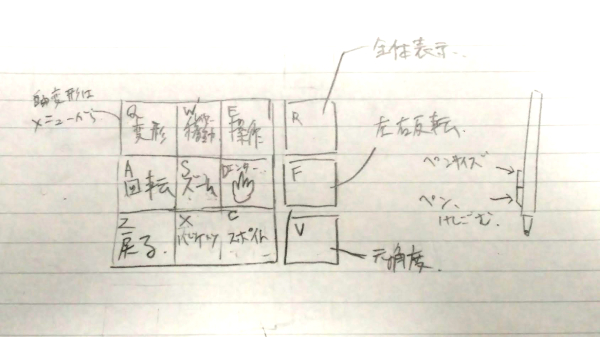 全体表示
自由変形は
メニューから
Q
変形
W
移動
E
操作
R
左右反転
A
回転
S
ズーム
F
ペンサイズ
ペン、
けしごむ
Z
戻る
X
バケツ
C
スポイト
V
元角度